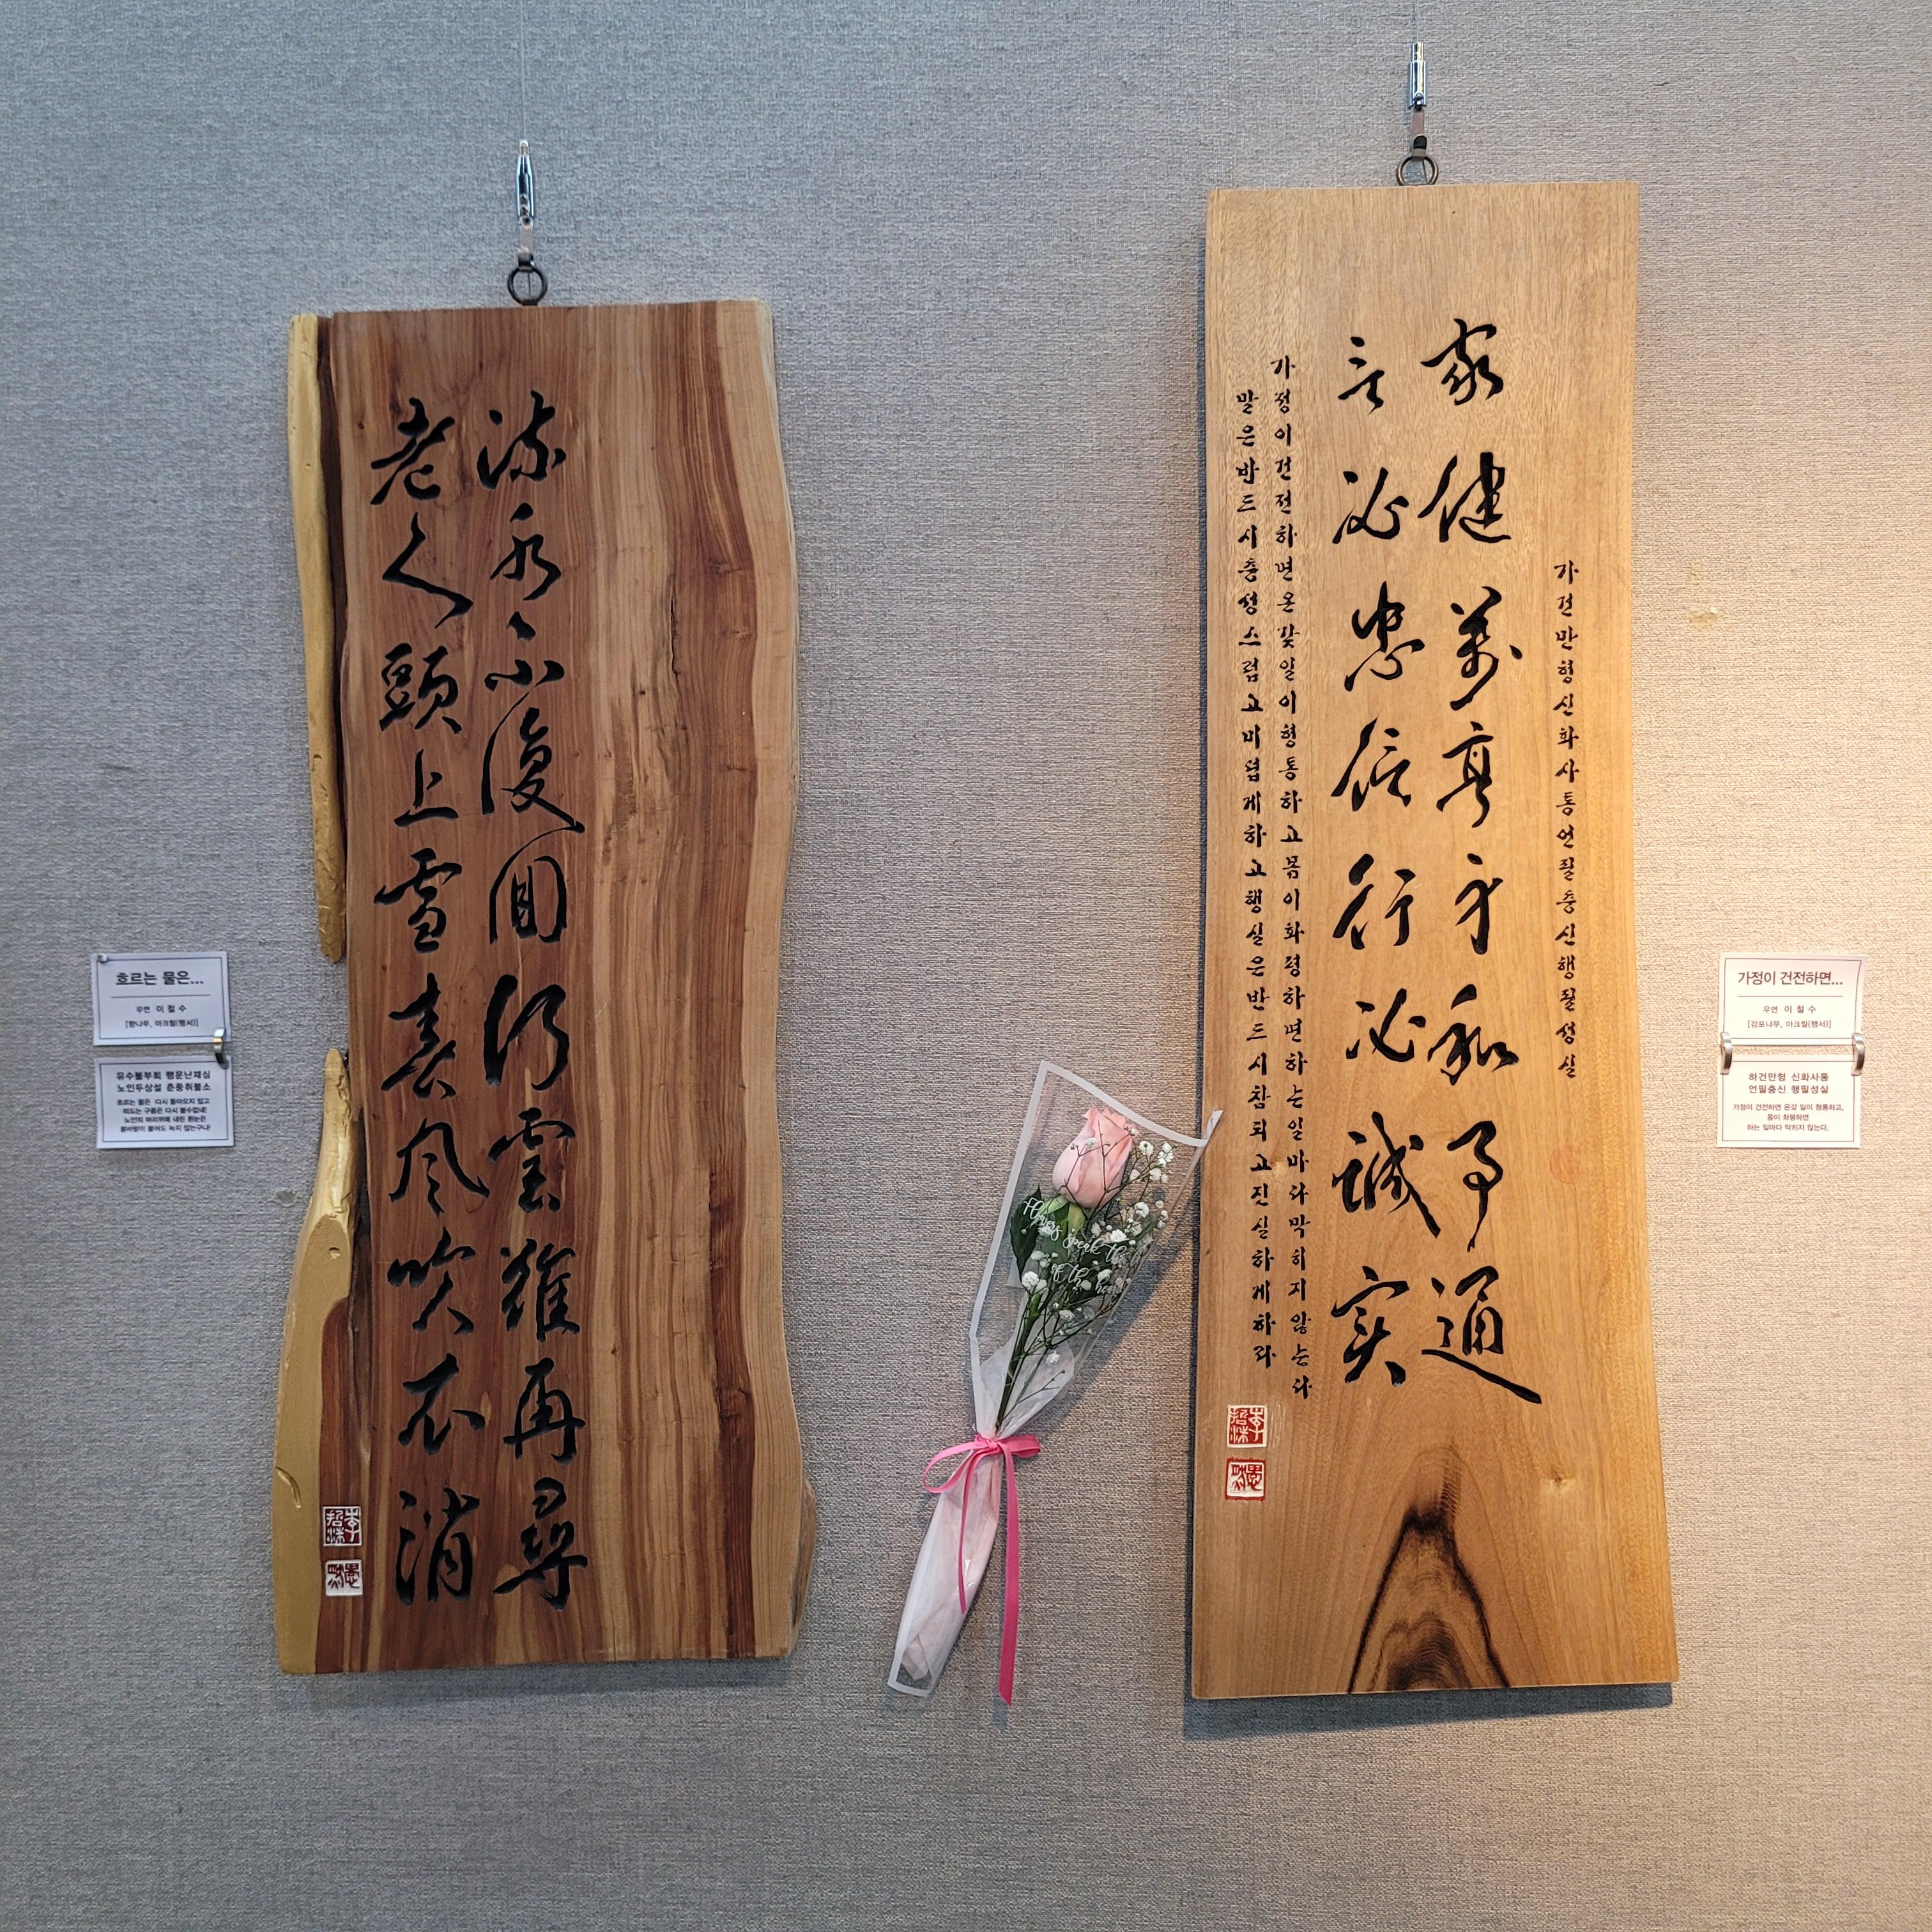 흐르는 물은...
우연 이철수
[향나무, 아크릴(행서)]
유수불부회 행운난재심
노인두상설 춘풍취불소
흐르는 물은 다시 돌아오지 않고
떠도는 구름은 다시 볼수없네!
노인의 머리위에 내린 흰눈은
봄바람이 불어도 녹지 않는구나!
流水不復回行雲難再尋
老人頭上雪春風吹不消
Flowers speak the
of the heart
가건만형신화사통언필충신행필성실
家健萬亨身和事通
言必忠信行必誠實
가정이건전하면온갖일이형통하고몸이화평하면하는일마다막히지않는다
말은반드시충성스럽고미덥게하고행실은반드시참되고진실하게하라
가정이 건전하면...
우연 이철수
[감포나무, 아크릴(행서)]
하건만형 신화사통
언필충신 행필성실
가정이 건전하면 온갖 일이 형통하고,
몸이 화평하면
하는 일마다 막히지 않는다.